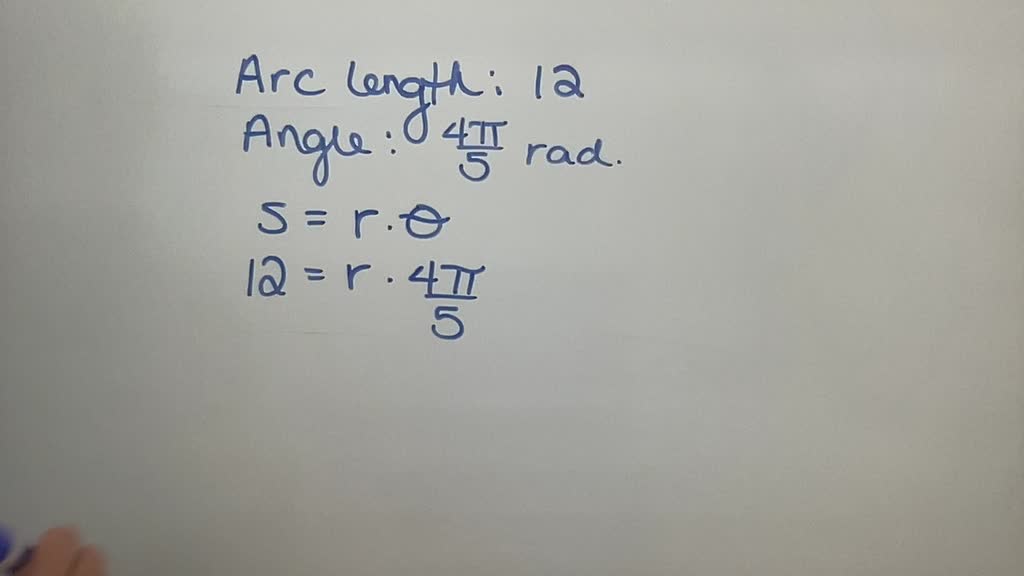 Arc length: 12
Angle: 4π/5 rad.
S = r · θ
12 = r · 4π/5